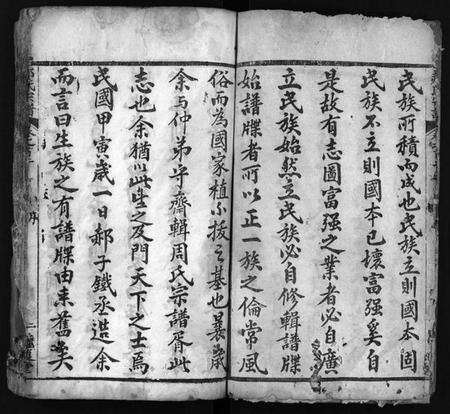 民族所積而成也民族立則國本固
民族不立則國本已壞富強奚自
是故有志圖富强之業者必自廣
立民族始然立民族必自修輯譜牒
始譜牒者所以正一族之倫常風
俗而為國家植不拔之基也曩歲
余与仲弟平齋輯周氏宗譜胥此
志也余猶以此望之及門天下之士焉
民國甲寅歲一日郝子鐵丞造余
而言曰生族之有譜牒由来舊矣